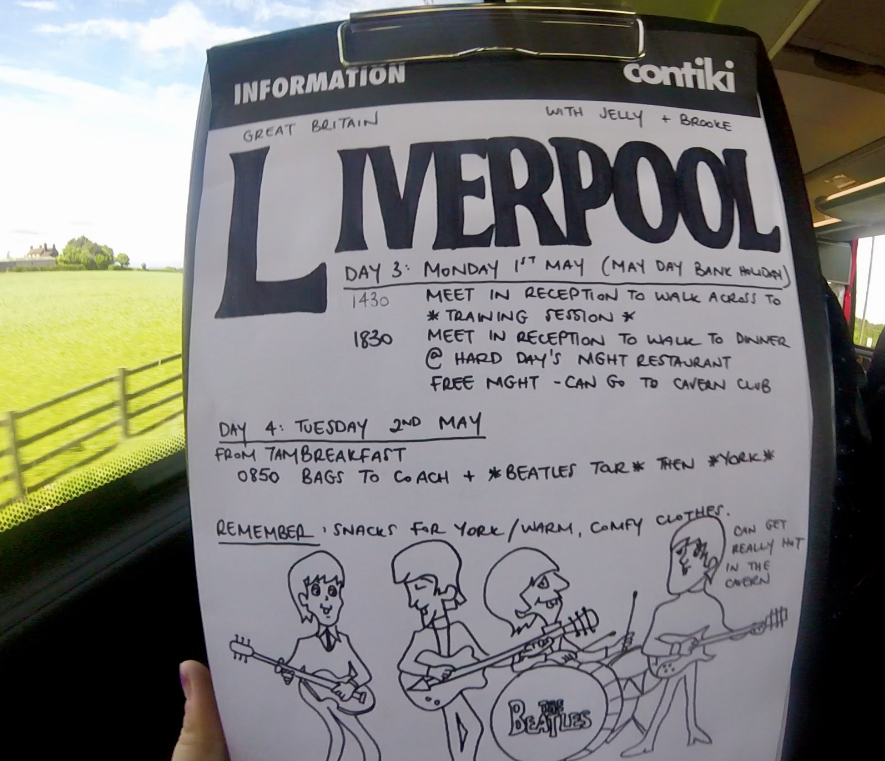 INFORMATION contiki
GREAT BRITAIN WITH JELLY + BROOKE
LIVERPOOL
DAY 3: MONDAY 1ST MAY (MAY DAY BANK HOLIDAY)
1430 MEET IN RECEPTION TO WALK ACROSS TO
* TRAINING SESSION *
1830 MEET IN RECEPTION TO WALK TO DINNER
@ HARD DAY'S NIGHT RESTAURANT
FREE NIGHT - CAN GO TO CAVERN CLUB
DAY 4: TUESDAY 2ND MAY
FROM 7AM BREAKFAST
0850 BAGS TO COACH + *BEATLES TOUR* THEN *YORK*
REMEMBER: SNACKS FOR YORK/WARM, COMFY CLOTHES.
CAN GET
REALLY HOT
IN THE
CAVERN
THE
BEATLES